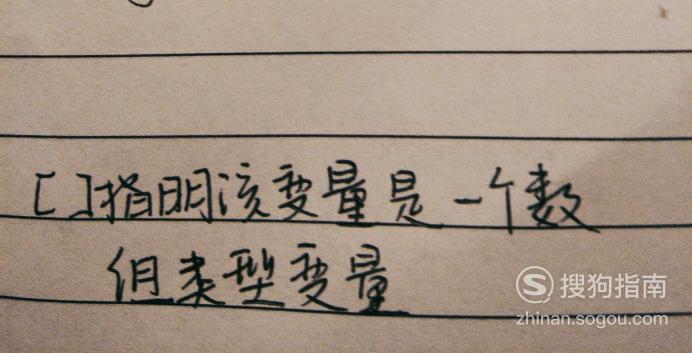 [ ]指明该变量是一个数
组类型变量
搜狗指南
zhinan.sogou.com